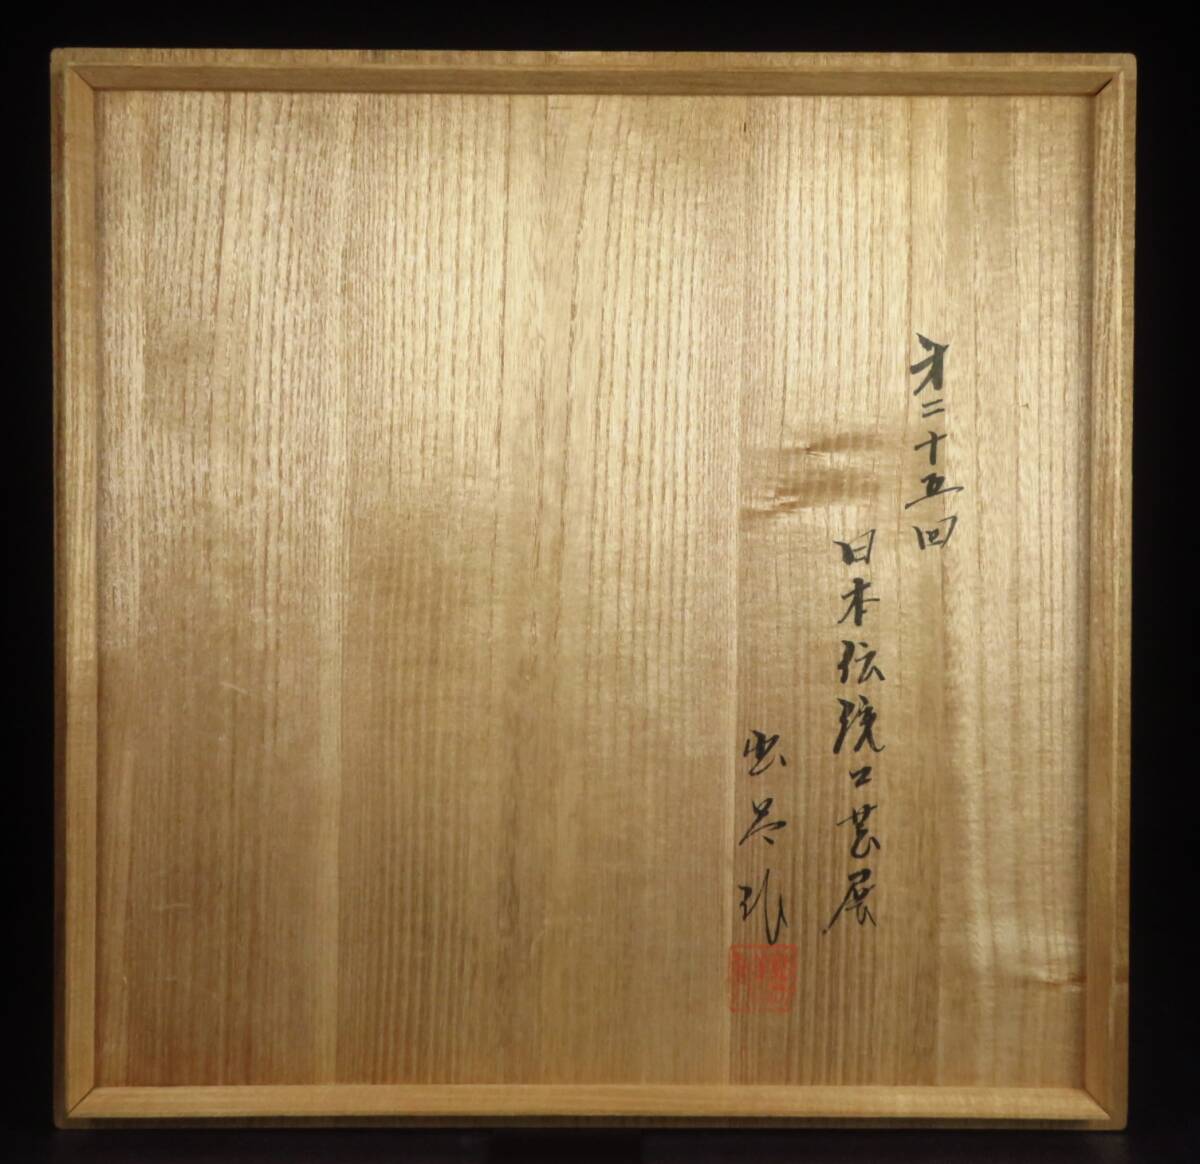 第二十五回
日本伝統工芸展
出品作